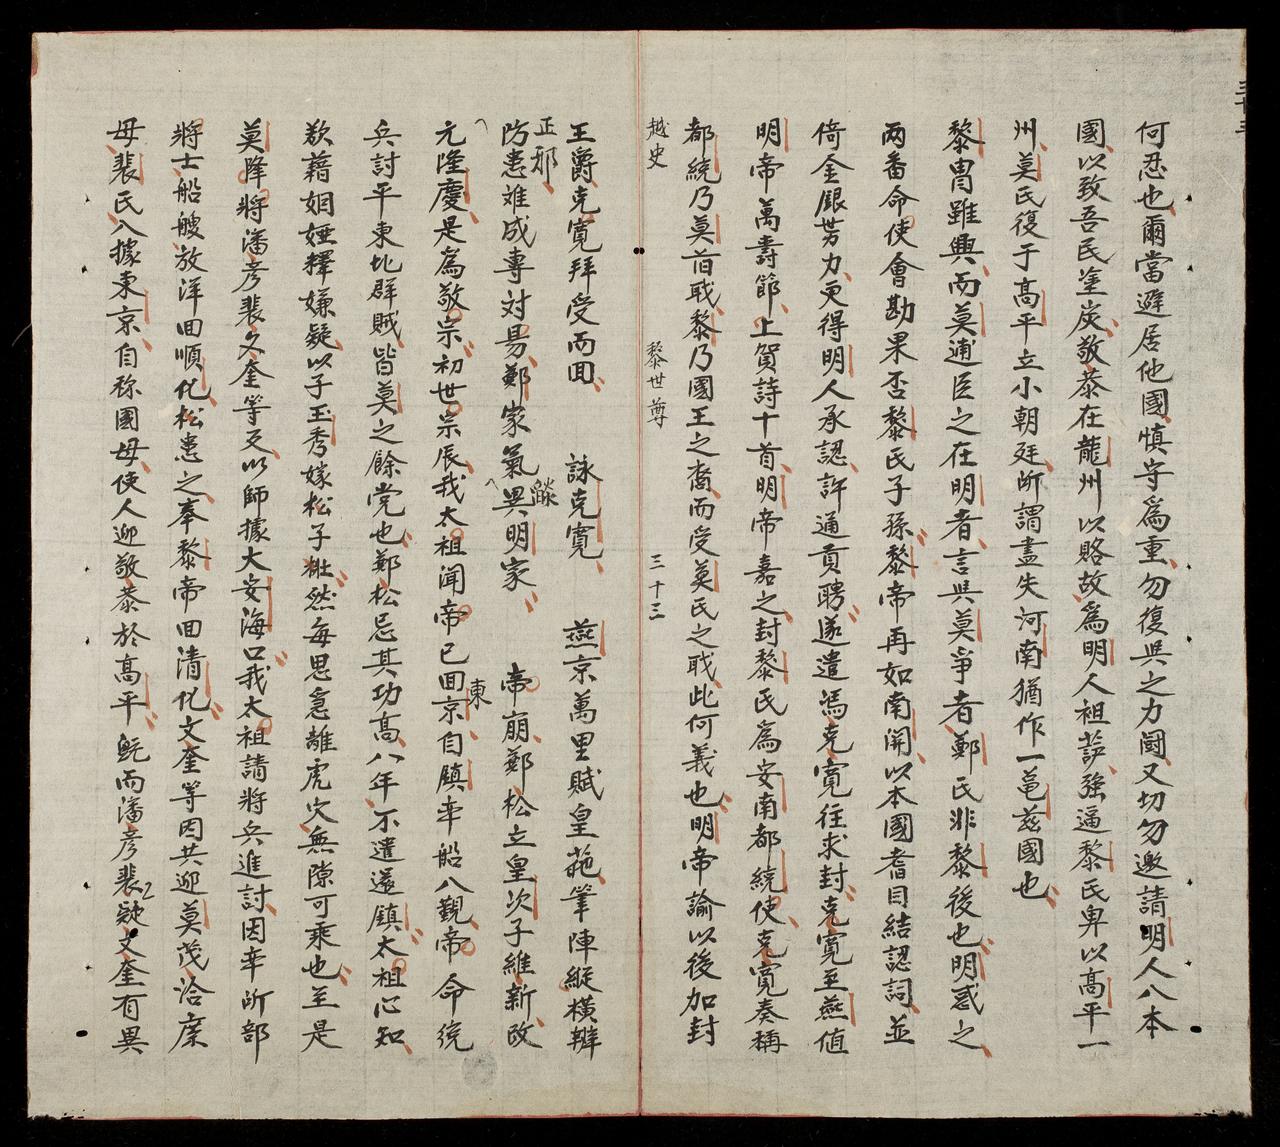 何忍也爾當避居他國慎守爲重勿復與之力圖又切勿邀請明人入本
國以致吾民塗炭敬恭在龍州以賂故爲明人袒護强逼黎民畀以高平一
州莫氏復于高平立小朝廷所謂盡失河南猶作一黽茲國也
黎胄雖興而莫逋臣之在明者言與莫爭者鄭氏非黎後也明惑之
兩番命使會勘果否黎氏子孫黎帝再如南關以本國耆目結認詞並
倚金銀势力更得明人承認許通貢聘遂遣馮克寬往求封克寬至燕值
明帝萬壽節上賀詩十首明帝嘉之封黎氏爲安南都統使克寬奏稱
都統乃莫首職黎乃國王之裔而受莫氏之職此何義也明帝諭以後加封
越史 黎世尊 三十三
王爵克寬拜受而囬 詠克寬 燕京萬里賦皇華筆陣縱橫辦
正邪
防患难成專対昜鄭家氣㷔異明家 帝崩鄭松立皇次子維新改
元隆慶是爲敬宗初世宗辰我太祖聞帝已囬東京自鎮率船入覲帝命統
兵討平東北群賊皆莫之餘党也鄭松忌其功高八年不遣還鎮太祖心知
欲藉姻婭釋嫌疑以子玉秀嫁松子梉然每思急離虎穴無隙可乘也至是
莫降將潘彦裴文奎等反以師據大安海口我太祖請將兵進討因率所部
將士船艘放洋囬順化松患之奉黎帝囬清化文奎等因共迎莫茂洽庶
母裴氏入據東京自称國母使人迎敬恭於高平旣而潘彦裴疑文奎有異